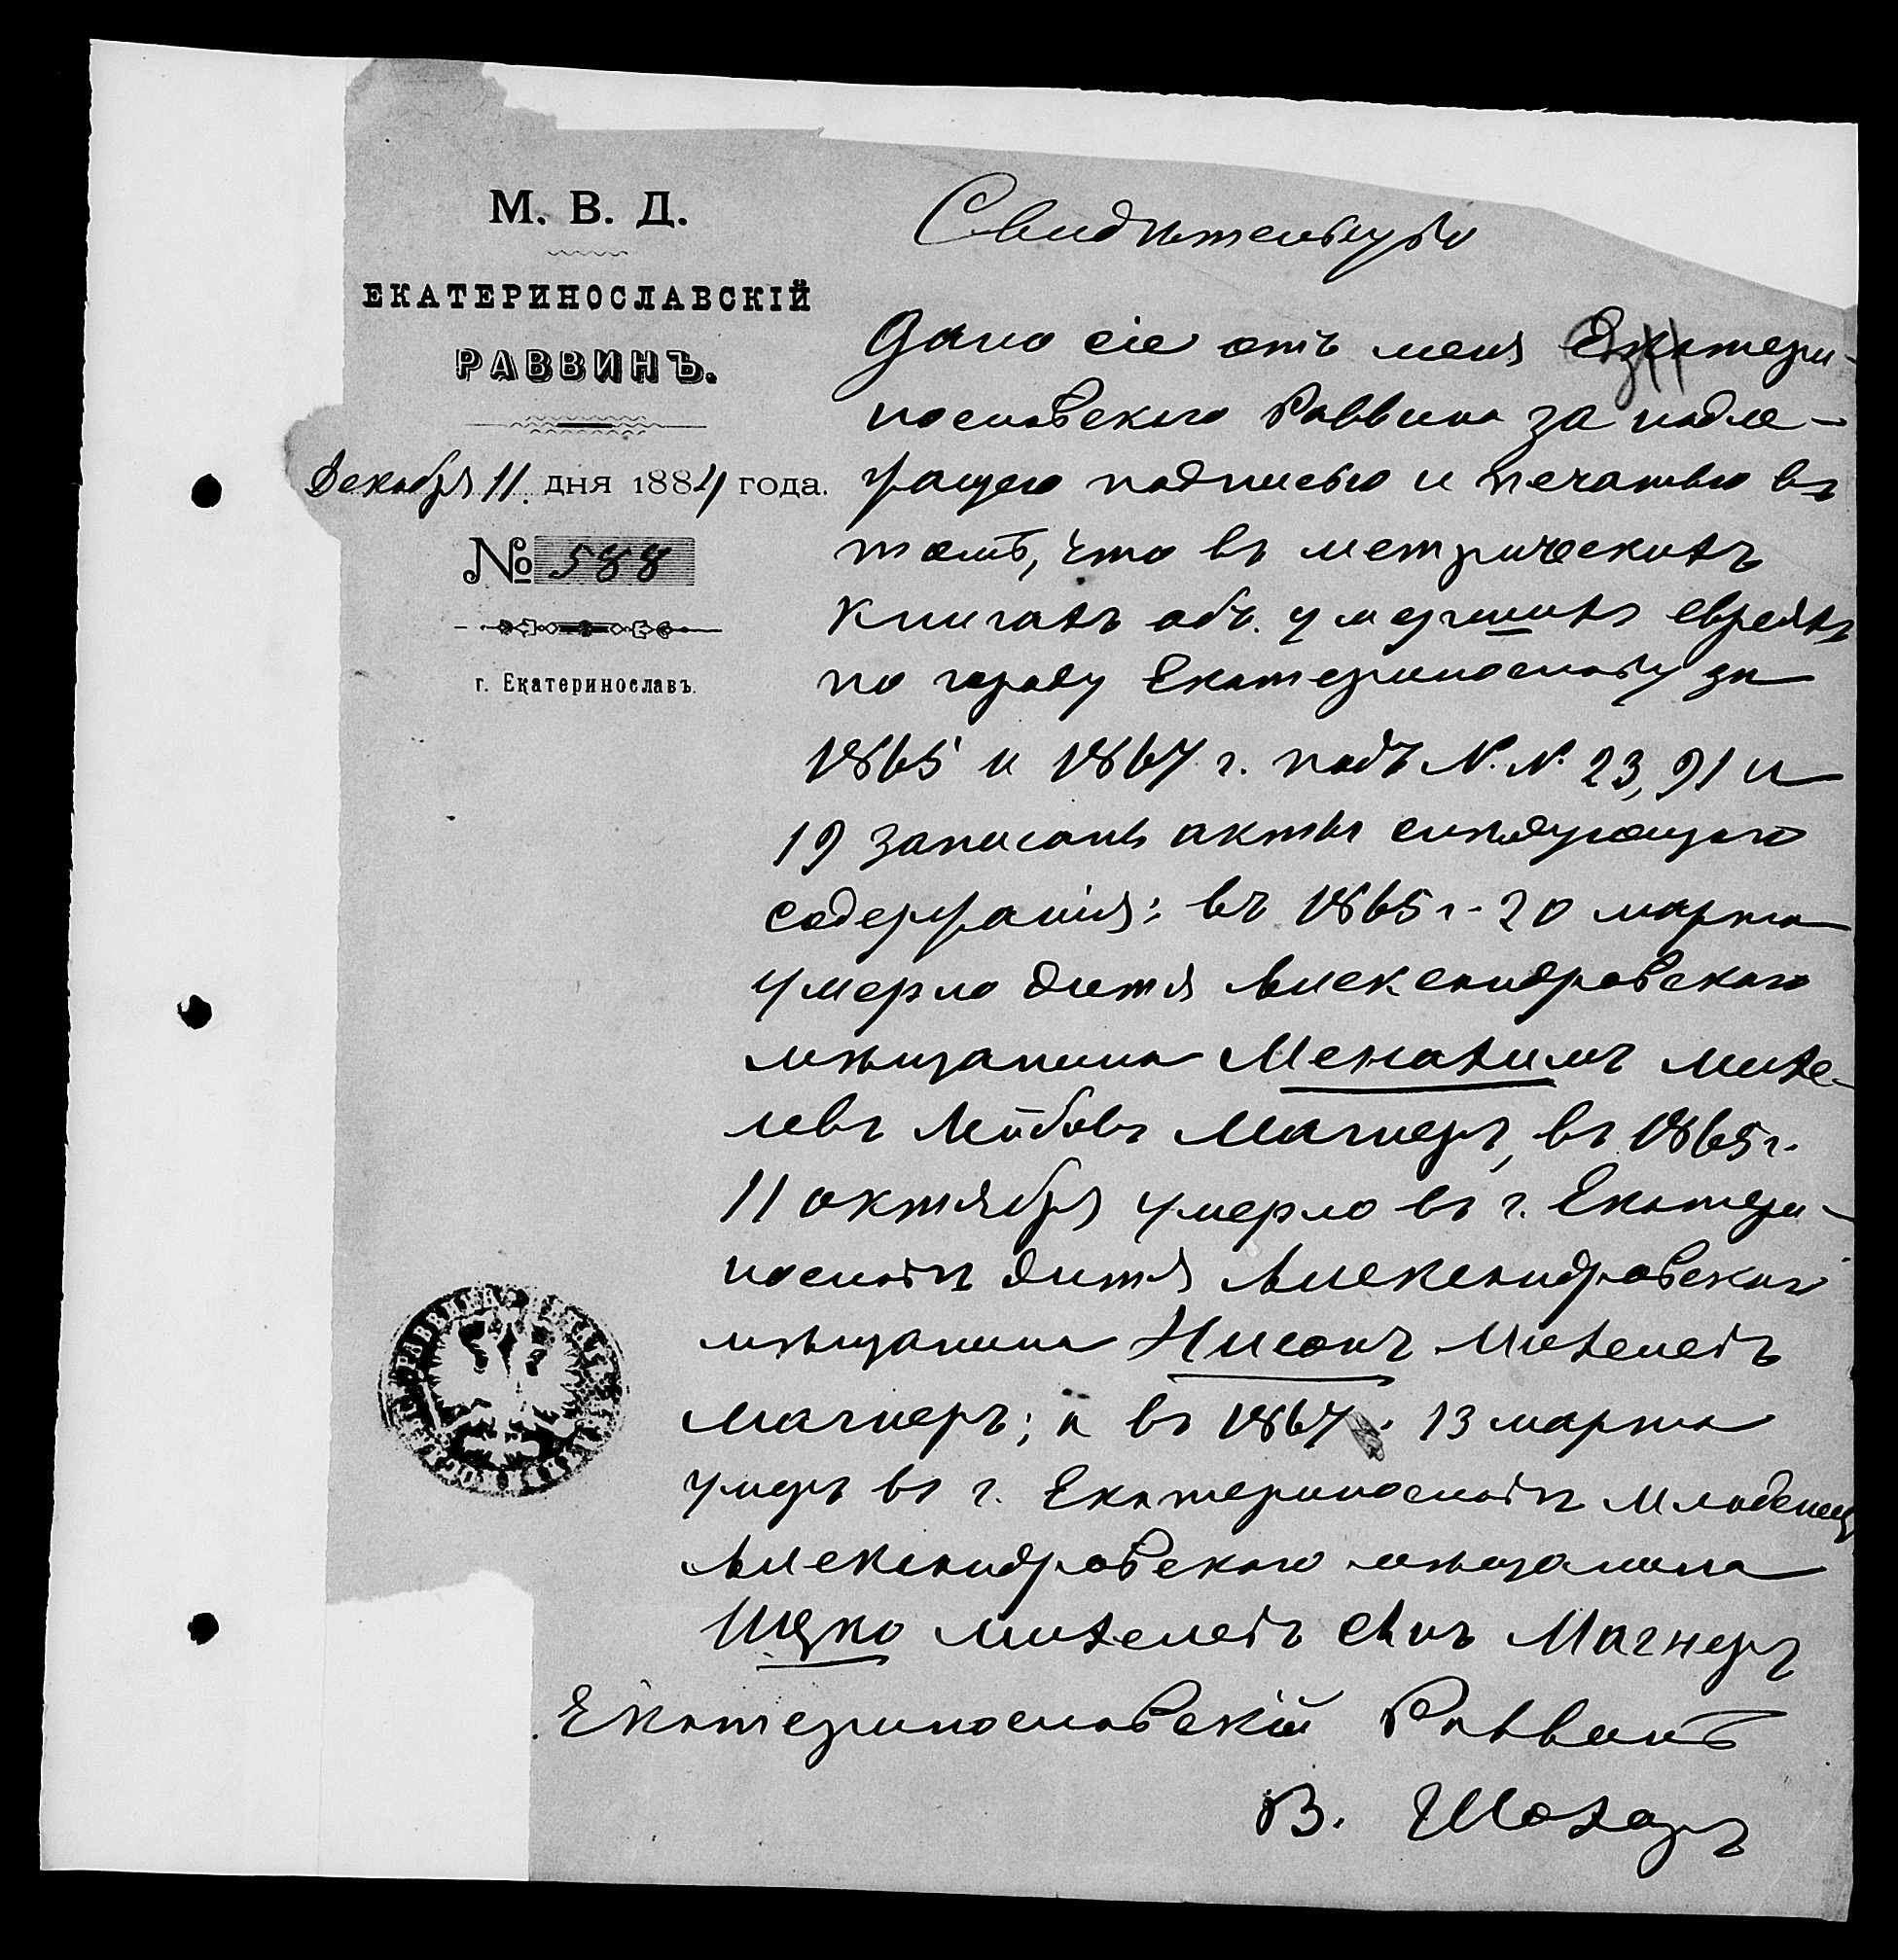 М. В. Д.
ЕКАТЕРИНОСЛАВСКІЙ
РАВВИНЪ.
Декабря 11 дня 1884 года.
№ 588
г. Екатеринославъ.
Свидѣтельство
Дано сіе отъ меня Екатери-
нославского Раввина за надле-
жащею подписью и печатью въ
томъ, что въ метрическихъ
книгахъ объ умершихъ евреяхъ
по городу Екатеринославу за
1865 и 1867 г. подъ N. N. 23, 91 и
19 записаны акты слѣдующего
содержанія: въ 1865 г. 20 марта
умерло дитя Александровского
мѣщанина Менахимъ Михе-
левъ Лейбовъ Магнеръ, въ 1865 г.
11 октября умерло въ г. Екатери-
нославѣ дитя Александровского
мѣщанина Нисонъ Михелевъ
Магнеръ; и въ 1867 13 марта
умеръ въ г. Екатеринославѣ младенец
Александровского мѣщанина
Михелевъ сынъ Магнеръ
Екатеринославскій Раввинъ
В. Шохоръ